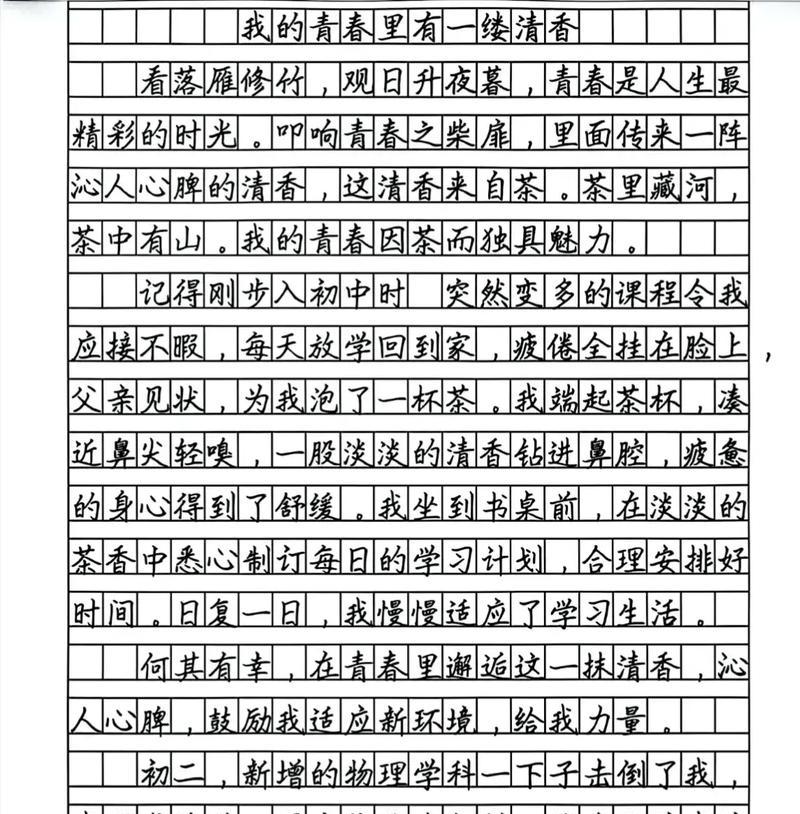 我的青春里有一缕清香
看落雁修竹，观日升夜暮，青春是人生最
精彩的时光。叩响青春之柴扉，里面传来一阵
沁人心脾的清香，这清香来自茶。茶里藏河，
茶中有山。我的青春因茶而独具魅力。
记得刚步入初中时 突然变多的课程令我
应接不暇，每天放学回到家，疲倦全挂在脸上，
父亲见状，为我泡了一杯茶。我端起茶杯，凑
近鼻尖轻嗅，一股淡淡的清香钻进鼻腔，疲惫
的身心得到了舒缓。我坐到书桌前，在淡淡的
茶香中悉心制订每日的学习计划，合理安排好
时间。日复一日，我慢慢适应了学习生活。
何其有幸，在青春里邂逅这一抹清香，沁
人心脾，鼓励我适应新环境，给我力量。
初二，新增的物理学科一下子击倒了我，